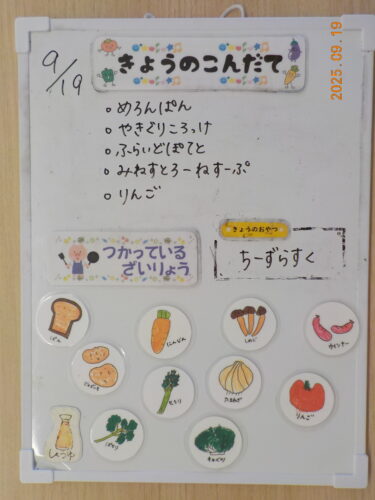 2025.09.19
9/19
きょうのこんだて
○めろんぱん
○やきぐりころっけ
○ふらいどぽてと
○みねすとろーねすーぷ
○りんご
きょうのおやつ
ちーずらすく
つかっている
ざいりょう
ぱん
にんじん
しめじ
ウインナー
じゃがいも
せろり
たまねぎ
りんご
しょうゆ
ぱせり
キャベツ